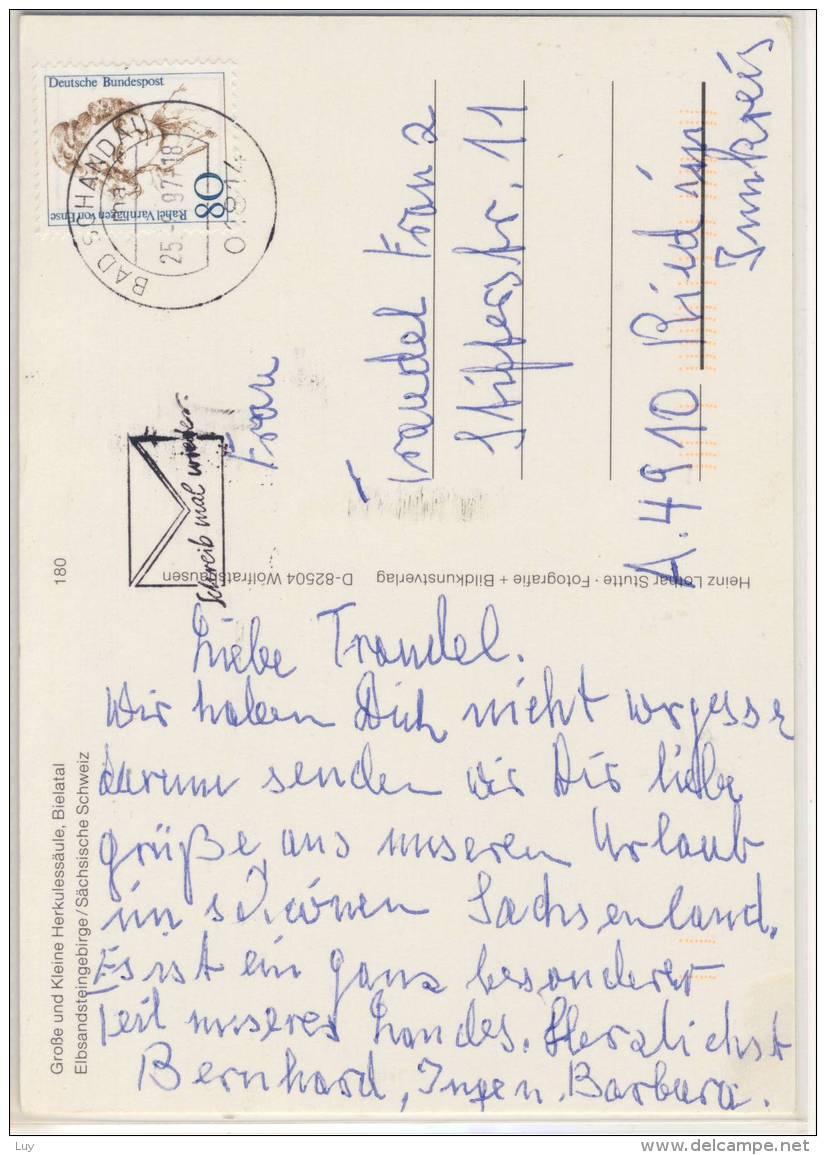 Deutsche Bundespost
80
Rahel Varnhagen von Ense
BAD SCHANDAU
25.
97-18
01814
Schreib mal wieder.
Frau
Traudel Franz
Stifterstr. 11
A-4910 Ried im
Innkreis
180
Heinz Lothar Stutte · Fotografie + Bildkunstverlag D-82504 Wolfratshausen
Große und Kleine Herkulessäule, Bielatal
Elbsandsteingebirge/Sächsische Schweiz
Liebe Traudel.
Wir haben Dich nicht vergesse
darum senden wir Dir liebe
grüße aus unseren Urlaub
im schönen Sachsenland.
Es ist ein ganz besonderer
Teil unseres Landes. Herzlichst
Bernhard, Barbara.
Luy
www.delcampe.net